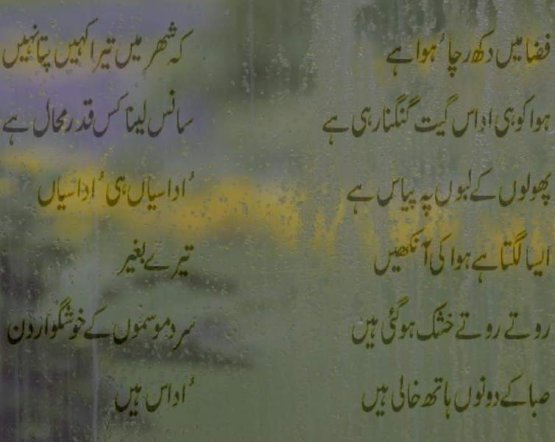 فضا میں دکھ رچا ہُوا ہے
ہوا کوہی اداس گیت گنگنا رہی ہے
پھولوں کے لبوں پہ پیاس ہے
ایسا لگتا ہے ہوا کی آنکھیں
روتے روتے خشک ہوگئی ہیں
صبا کے دونوں ہاتھ خالی ہیں
کہ شہر میں تیرا کہیں پتا نہیں
سانس لینا کس قدر محال ہے
اُداسیاں ہی اُداسیاں
تیرے بغیر
سرد موسموں کے خوشگوار دن
اُداس ہیں